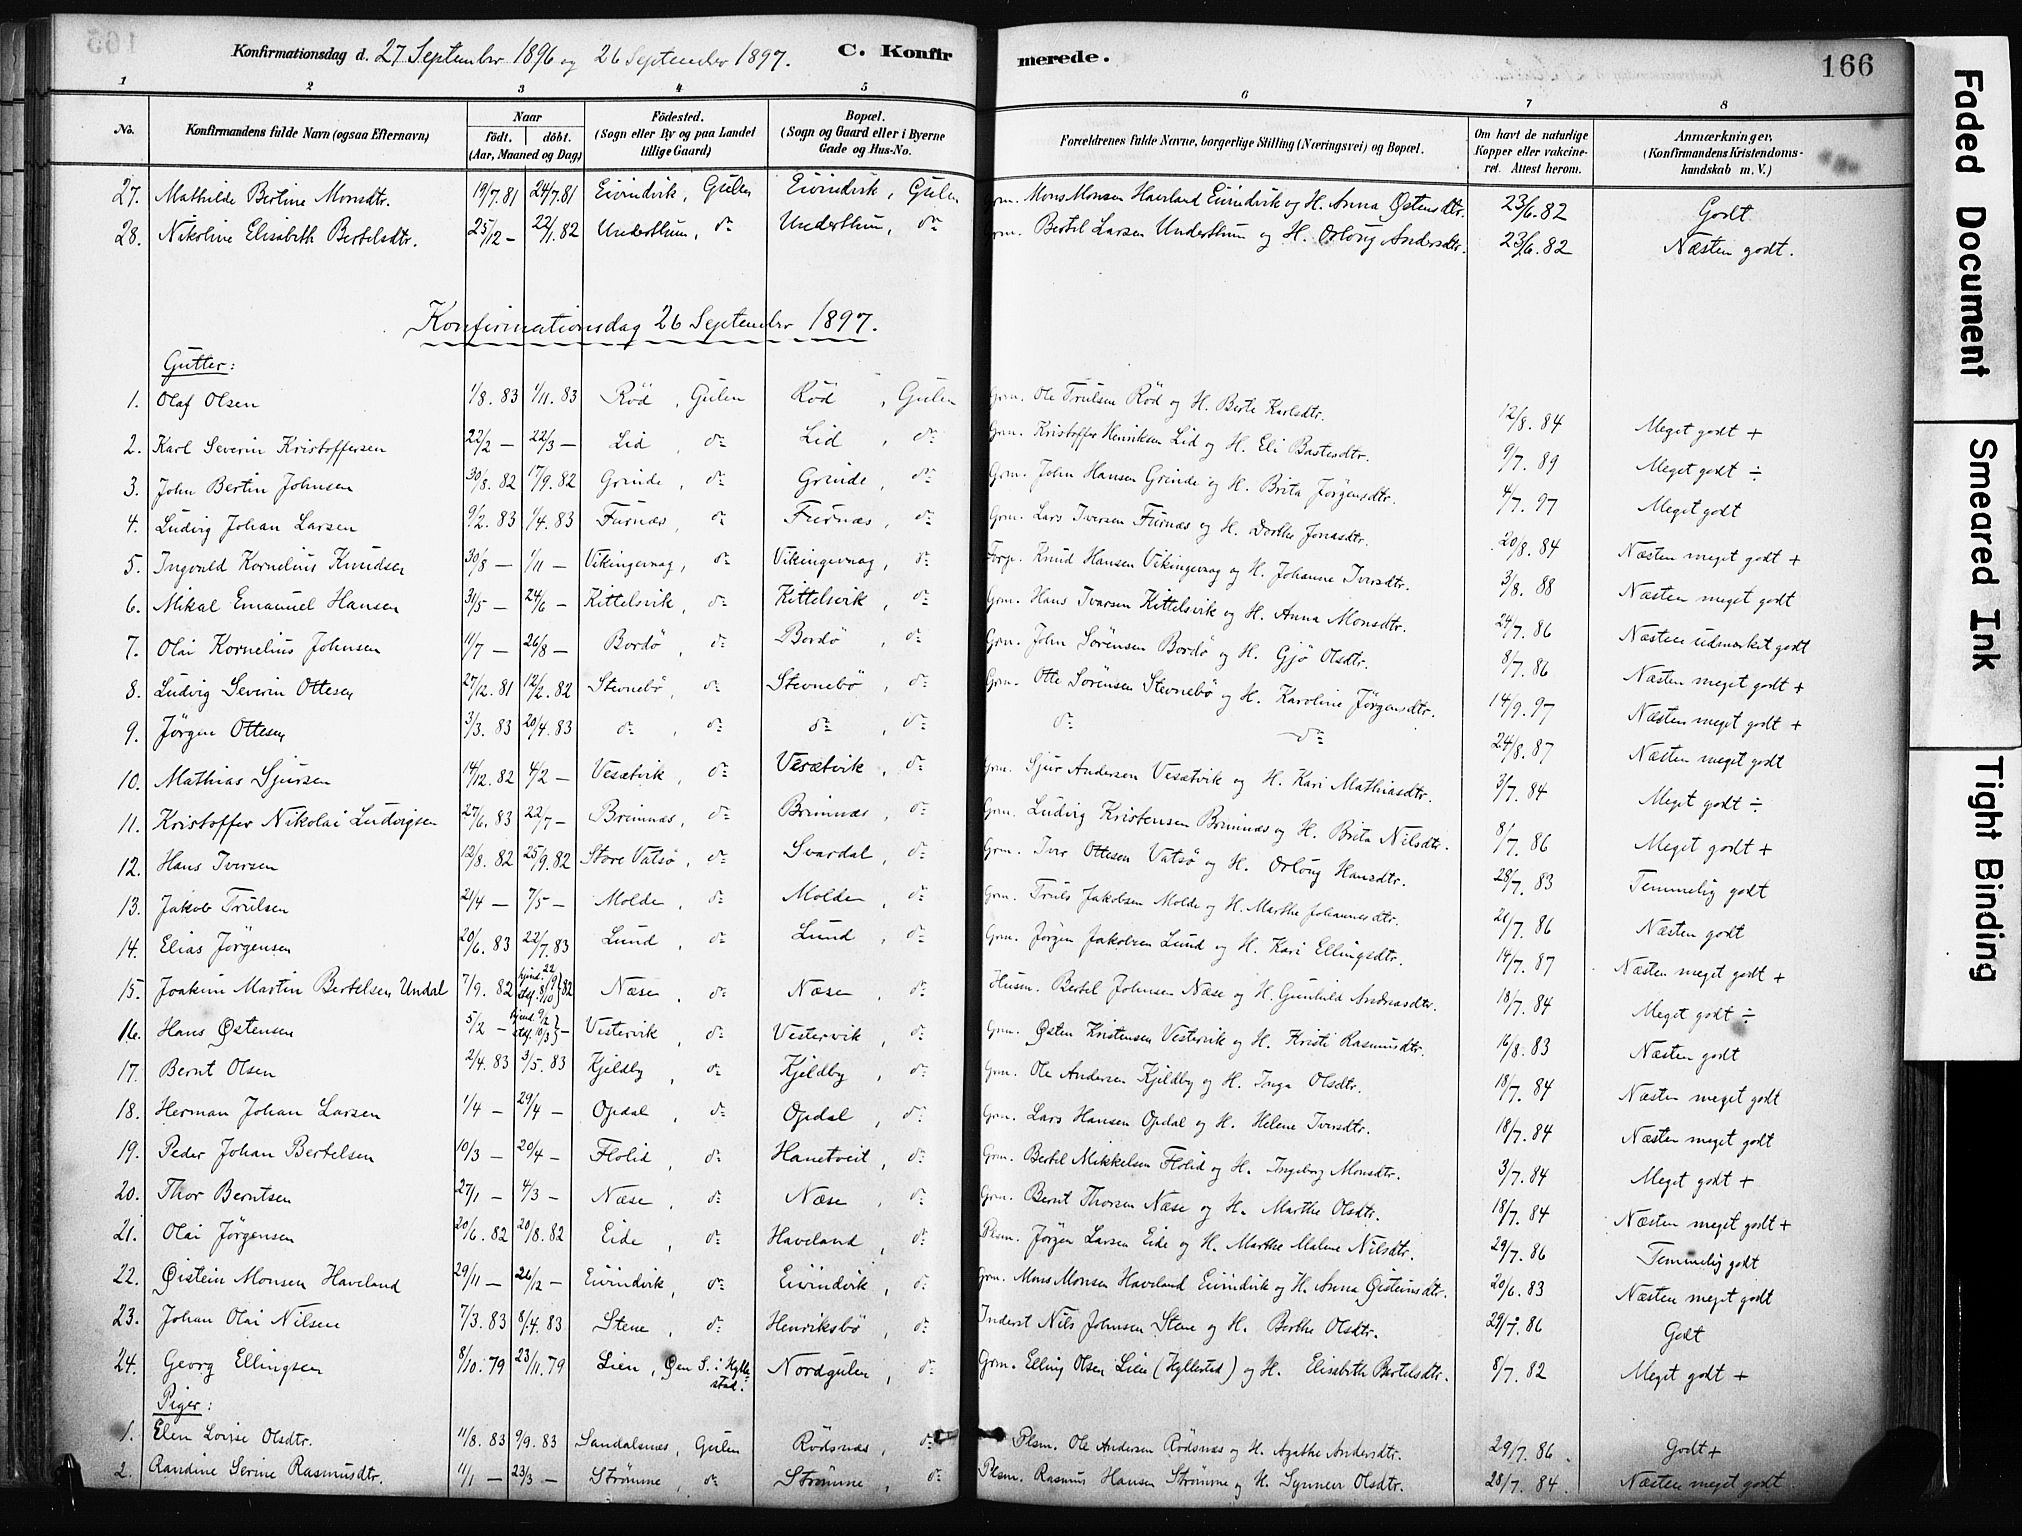 Konfirmationsdag d. 27 September 1896 og 26 September 1897. C. Konfirmerede. 166
1 2 3 4 5 6 7 8
No. Konfirmandens fulde Navn (ogsaa Efternavn) Naar født. døbt. (Aar, Maaned og Dag) Födested. (Sogn eller By og paa Landet tillige Gaard) Bopæl. (Sogn og Gaard eller i Byerne Gade og Hus-No. Forældrenes fulde Navne, borgerlige Stilling (Næringsvei) og Bopæl. Om havt de naturlige Kopper eller vakcineret. Attest herom. Anmærkninger. (Konfirmandens Kristendomskundskab m. V.)
27. Mathilde Bertine Monsdtr. 19/7.81 24/7.81 Eivindvik, Gulen Eivindvik, Gulen Grm. Mons Monsen Haveland Eivindvik og H. Anna Østensdtr. 23/6.82 Godt
28. Nikoline Elisabeth Bertelsdtr. 25/12 - 22/1.82 Underthun, do Underthun, do Grm. Bertel Larsen Underthun og H. Orloug Andersdtr. 23/6.82 Næsten godt.
Konfirmationsdag 26 September 1897.
Gutter:
1. Olaf Olsen 1/8.83 1/11.83 Röd, Gulen Röd, Gulen Grm. Ole Trulsen Röd og H. Berte Karlsdtr. 12/8.84 Meget godt +
2. Karl Severin Kristoffersen 22/2 - 22/3 - Lid do Lid, do Grm. Kristoffer Henriksen Lid og H. Eli Bastesdtr. 9/7.89 Meget godt ÷
3. John Bertin Johnsen 30/8.82 17/9.82 Grinde, do Grinde, do Grm. John Hansen Grinde og H. Brita Jörgensdtr. 4/7.97 Meget godt
4. Ludvig Johan Larsen 9/2.83 1/4.83 Furnæs, do Furnæs, do Grm. Lars Iversen Furnæs og H. Dorthe Jonasdtr. 20/8.84 Næsten meget godt +
5. Ingvald Kornelius Knudsen 30/8 - 1/11 - Vikingevaag, do Vikingevaag, do Knud Hansen Vikingevaag og H. Johanne Iversdtr. 3/8.88 Næsten meget godt
6. Mikal Emanuel Hansen 31/5 - 24/6 - Kittelsvik, do Kittelsvik, do Grm. Hans Ivarsen Kittelsvik og H. Anna Monsdtr. 24/7.86 Næsten udmærket godt
7. Olai Kornelius Johnsen 11/7 - 26/8 - Bordö, do Bordö, do Grm. John Sörensen Bordö og H. Gjö Olsdtr. 8/7.86 Næsten meget godt +
8. Ludvig Severin Ottesen 27/12.81 12/2.82 Stevnebö, do Stevnebö, do Grm. Otte Sörensen Stevnebö og H. Karoline Jörgensdtr. 14/9.97 Næsten meget godt +
9. Jörgen Ottesen 3/3.83 20/4.83 do, do do, do do do 24/8.87 Næsten meget godt
10. Mathias Sjursen 14/12.82 4/2 - Vesætvik, do Vesætvik, do Grm. Sjur Andersen Vesætvik og H. Kari Mathiasdtr. 3/7.84 Meget godt ÷
11. Kristoffer Nikolai Ludvigsen 27/6.83 22/7 - Brimnæs, do Brimnæs, do Grm. Ludvig Kristensen Brimnæs og H. Brita Nilsdtr. 8/7.86 Meget godt +
12. Hans Iversen 12/8.82 25/9.82 Store Vatsö, do Svardal, do Grm. Iver Ottesen Vatsö og H. Orloug Hansdtr. 28/7.83 Temmelig godt
13. Jakob Trulsen 21/4 - 7/5 - Molde, do Molde, do Grm. Truls Jakobsen Molde og H. Marthe Johannesdtr. 21/7.86 Næsten godt
14. Elias Jörgensen 20/6.83 22/7.83 Lund, do Lund, do Grm. Jörgen Jakobsen Lund og H. Kari Ellingsdtr. 14/7.87 Næsten meget godt +
15. Joakim Martin Bertelsen Undal 7/9.82 hjmd. 22/9 stf. 8/10 } 82 Næse, do Næse, do Husm. Bertel Johnsen Næse og H. Gunhild Andreasdtr. 18/7.84 Meget godt ÷
16. Hans Østensen 5/2 - hjmd. 9/2 stf. 10/3 } - Vestervik, do Vestervik, do Grm. Østen Kristensen Vestervik og H. Kristi Rasmusdtr. 16/8.83 Næsten godt
17. Bernt Olsen 2/4.83 3/5.83 Kjeldby, do Kjeldby, do Grm. Ole Andersen Kjeldby og H. Inga Olsdtr. 18/7.84 Næsten meget godt
18. Herman Johan Larsen 1/4 - 29/4 - Opdal, do Opdal, do Grm. Lars Hansen Opdal og H. Helene Iversdtr. 18/7.84 Næsten meget godt
19. Peder Johan Bertelsen 10/3 - 20/4 - Flolid, do Hanetveit, do Grm. Bertel Mikkelsen Flolid og H. Ingeborg Monsdtr. 3/7.84 Meget godt +
20. Thor Berntsen 27/1 - 4/3 - Næse, do Næse, do Grm. Bernt Thorsen Næse og H. Marthe Olsdtr. 18/7.84 Næsten meget godt +
21. Olai Jörgensen 20/6.82 20/8.82 Eide, do Haveland, do Plsm. Jörgen Larsen Eide og H. Marthe Malene Nilsdtr. 29/7.86 Temmelig godt
22. Øistein Monsen Haveland 29/11 - 26/12 - Eivindvik, do Eivindvik, do Grm. Mons Monsen Haveland Eivindvik og H. Anna Øisteinsdtr. 20/6.83 Næsten meget godt
23. Johan Olai Nilsen 7/3.83 8/4.83 Stene, do Henriksbö, do Inderst Nils Johnsen Stene og H. Berthe Olsdtr. 29/7.86 Godt
24. Georg Ellingsen 8/10.79 23/11.79 Lien, Øen S. i Hyllestad. Nordgulen, do Grm. Elling Olsen Lien (Hyllestad) og H. Elisabeth Bertelsdtr. 8/7.82 Meget godt +
Piger:
1. Elen Lovise Olsdtr. 11/8.83 9/9.83 Sandalsnæs, Gulen Rödsnæs, do Plsm. Ole Andersen Rödsnæs og H. Agathe Andersdtr. 29/7.86. Godt +
2. Randine Serine Rasmusdtr. 11/1 - 23/3 - Strömme, do Strömme, do Plsm. Rasmus Hansen Strömme og H. Synneva Olsdtr. 28/7.84. Næsten meget godt
Faded Document
Smeared Ink
Tight Binding